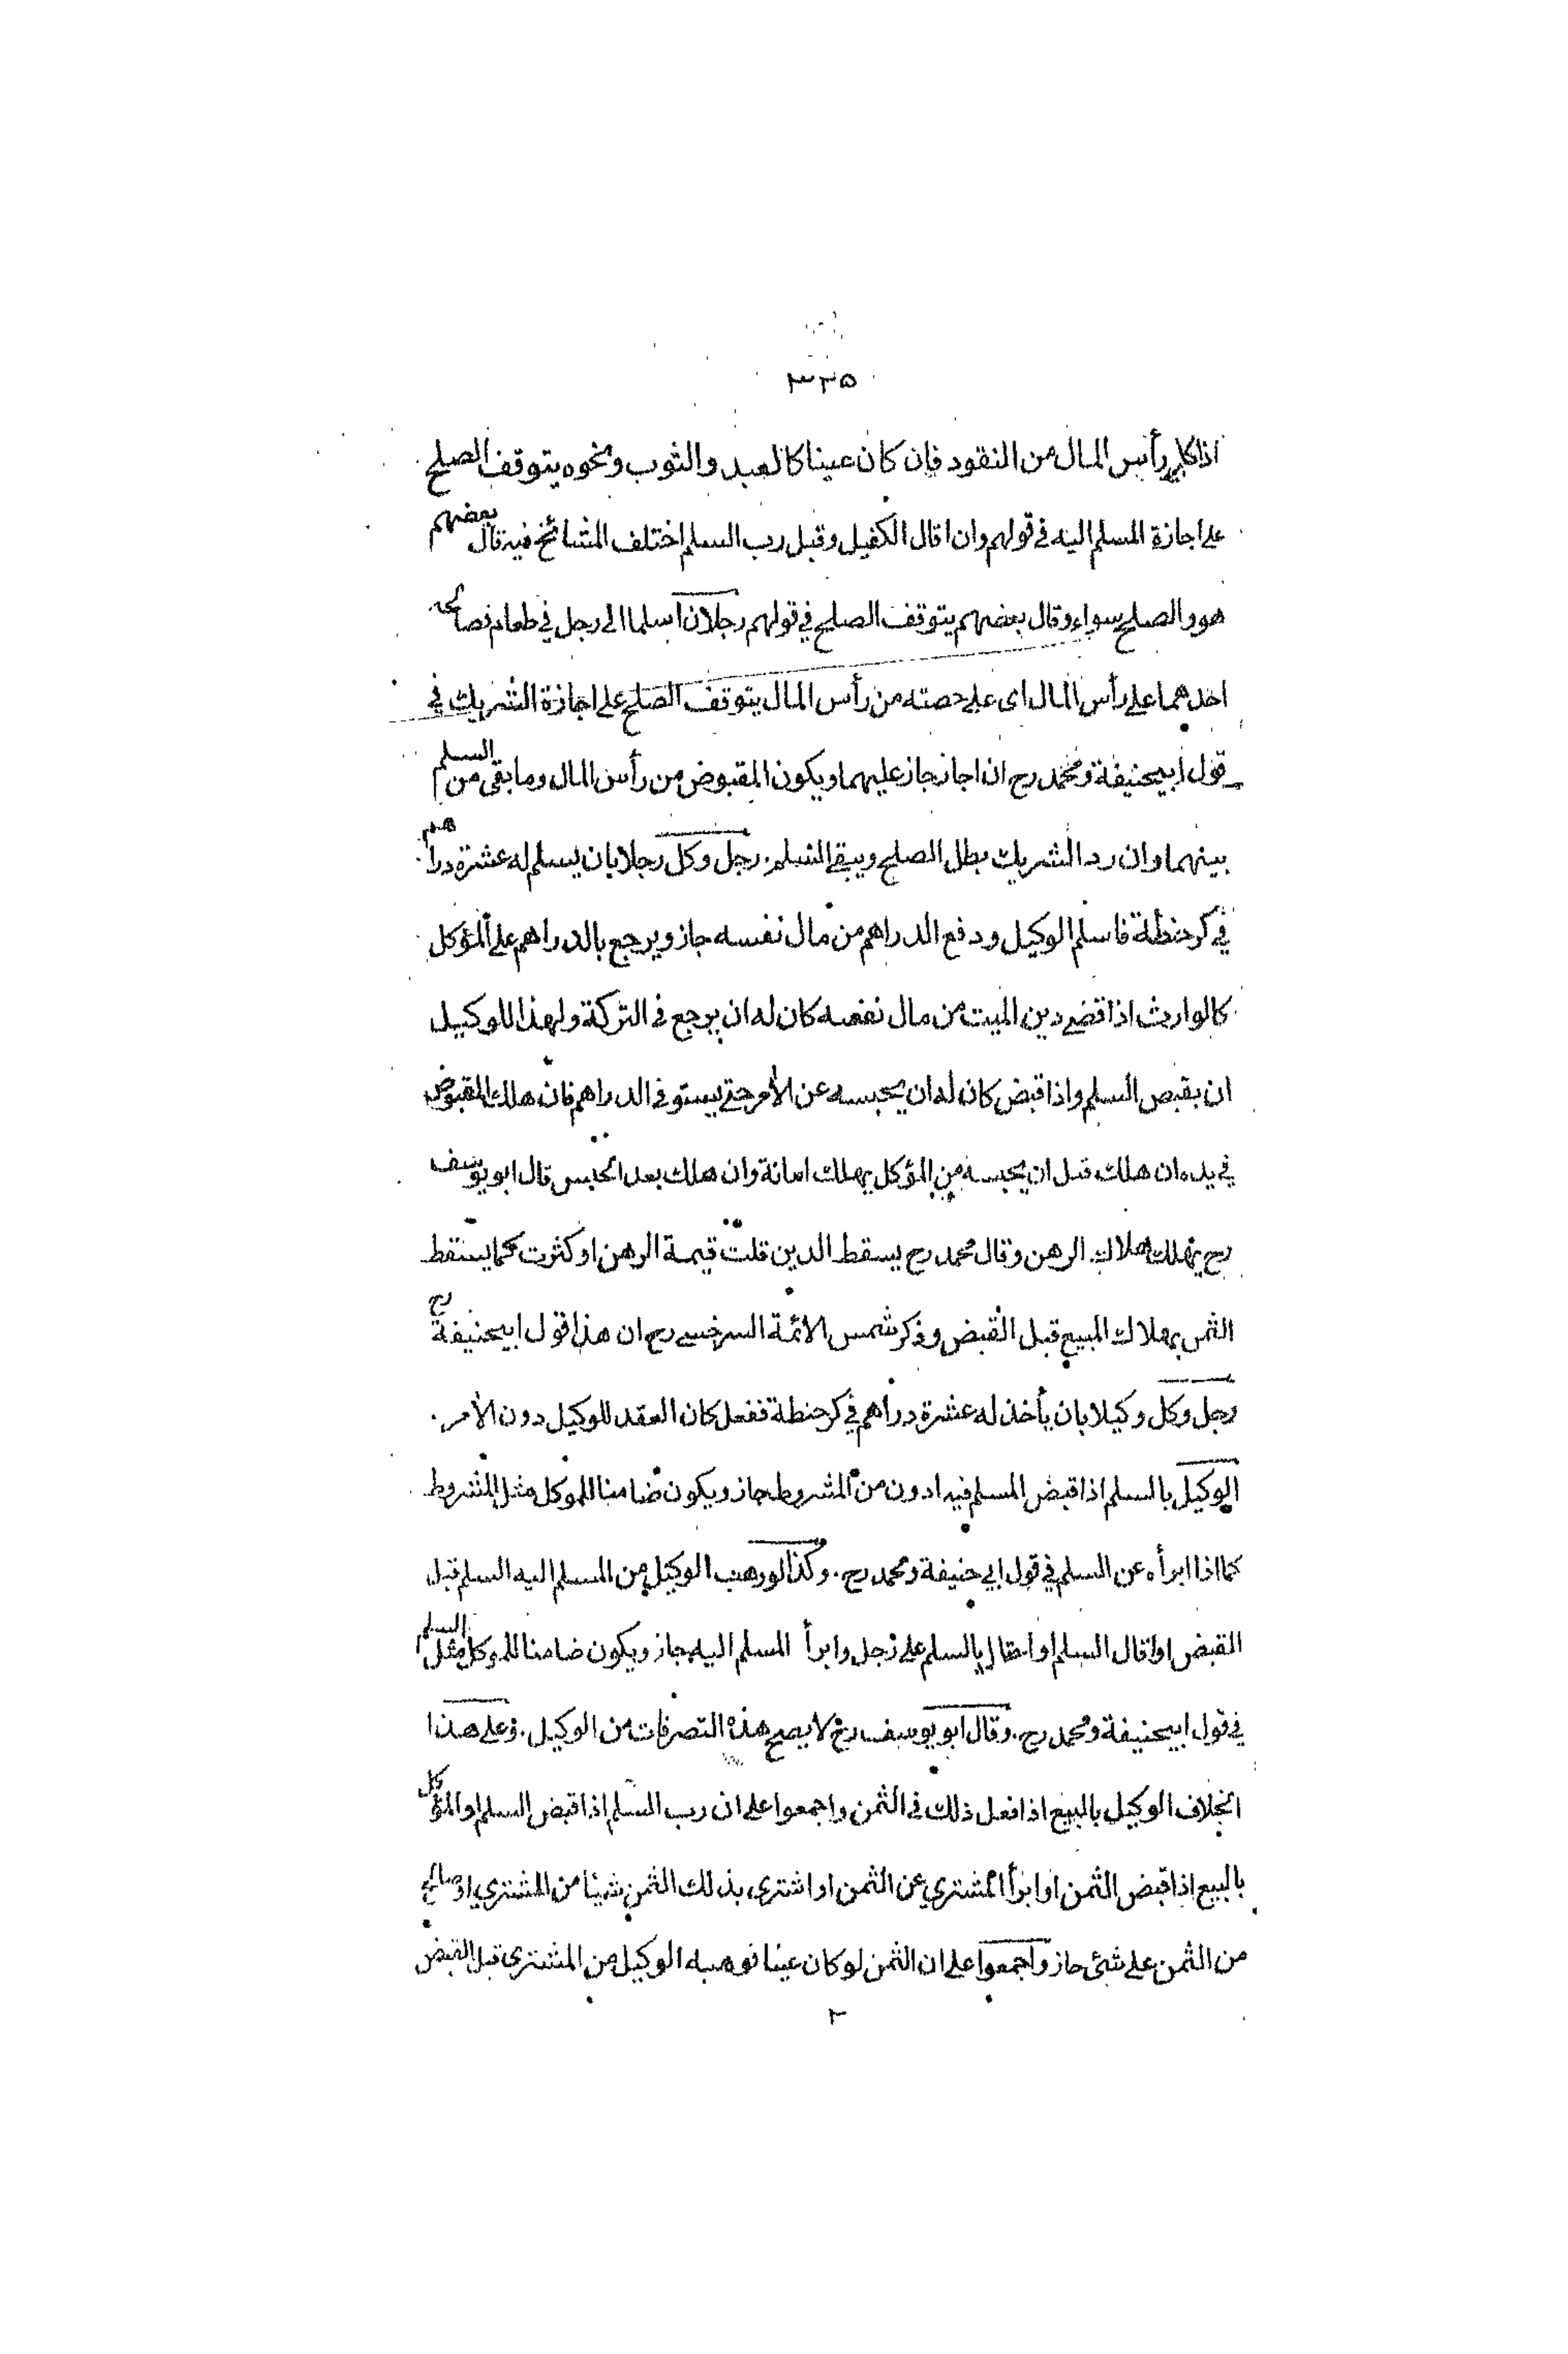 ٣٢٥
اذا كان رأس المال من النقود فان كان عينا كالعبد والثوب ونحوه يتوقف الصلح
على اجازة المسلم اليه في قولهم وان اقال الكفيل وقبل رب السلم اختلف المشائخ فيه قال بعضهم
هو والصلح سواء وقال بعضهم يتوقف الصلح في قولهم رجلان اسلما الى رجل في طعام فصالحه
احدهما على رأس المال اى على حصته من رأس المال يتوقف الصلح على اجازة الشريك في
قول ابيحنيفة ومحمد رح ان اجاز جاز عليهما ويكون المقبوض من رأس المال وما بقى من السلم
بينهما وان رد الشريك بطل الصلح ويبقى السلم. رجل وكل رجلا بان يسلم له عشرة دراهم
في كر حنطة فاسلم الوكيل ودفع الدراهم من مال نفسه جاز ويرجع بالدراهم على المؤكل
كالوارث اذا قضى دين الميت من مال نفسه كان له ان يرجع في التركة ولهذا للوكيل
ان يقبض السلم واذا قبض كان له ان يحبسه عن الأمر حتى يستوفى الدراهم فان هلك المقبوض
في يده ان هلك قبل ان يحبسه من المؤكل يهلك امانة وان هلك بعد الحبس قال ابو يوسف
رح يهلك هلاك الرهن وقال محمد رح يسقط الدين قلت قيمة الرهن او كثرت كما يسقط
الثمن بهلاك المبيع قبل القبض وذكر شمس الائمة السرخسي رح ان هذا قول ابيحنيفة رح
رجل وكل وكيلا بان يأخذ له عشرة دراهم في كر حنطة ففعل كان العقد للوكيل دون الأمر.
الوكيل بالسلم اذا قبض المسلم فيه ادون من المشروط جاز ويكون ضامنا للموكل مثل المشروط
كما اذا ابرأه عن السلم في قول ابي حنيفة ومحمد رح. وكذا لو وهب الوكيل من المسلم اليه السلم قبل
القبض او اقال السلم او احتال بالسلم على رجل وابرأ المسلم اليه جاز ويكون ضامنا للموكل مثل السلم
في قول ابيحنيفة ومحمد رح. وقال ابو يوسف رح لا يصح هذه التصرفات من الوكيل. وعلى هذا
الخلاف الوكيل بالبيع اذا فعل ذلك في الثمن واجمعوا على ان رب السلم اذا قبض السلم او المؤكل
بالبيع اذا قبض الثمن او ابرأ المشتري عن الثمن او اشترى بذلك الثمن شيئا من المشتري او صالح
من الثمن على شئ جاز واجمعوا على ان الثمن لو كان عينا فوهبه الوكيل من المشترى قبل القبض
٢